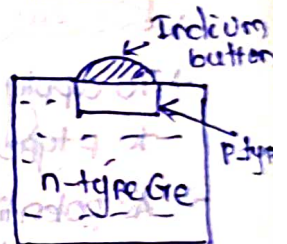 Indium
button
P-typ
n-type Ge